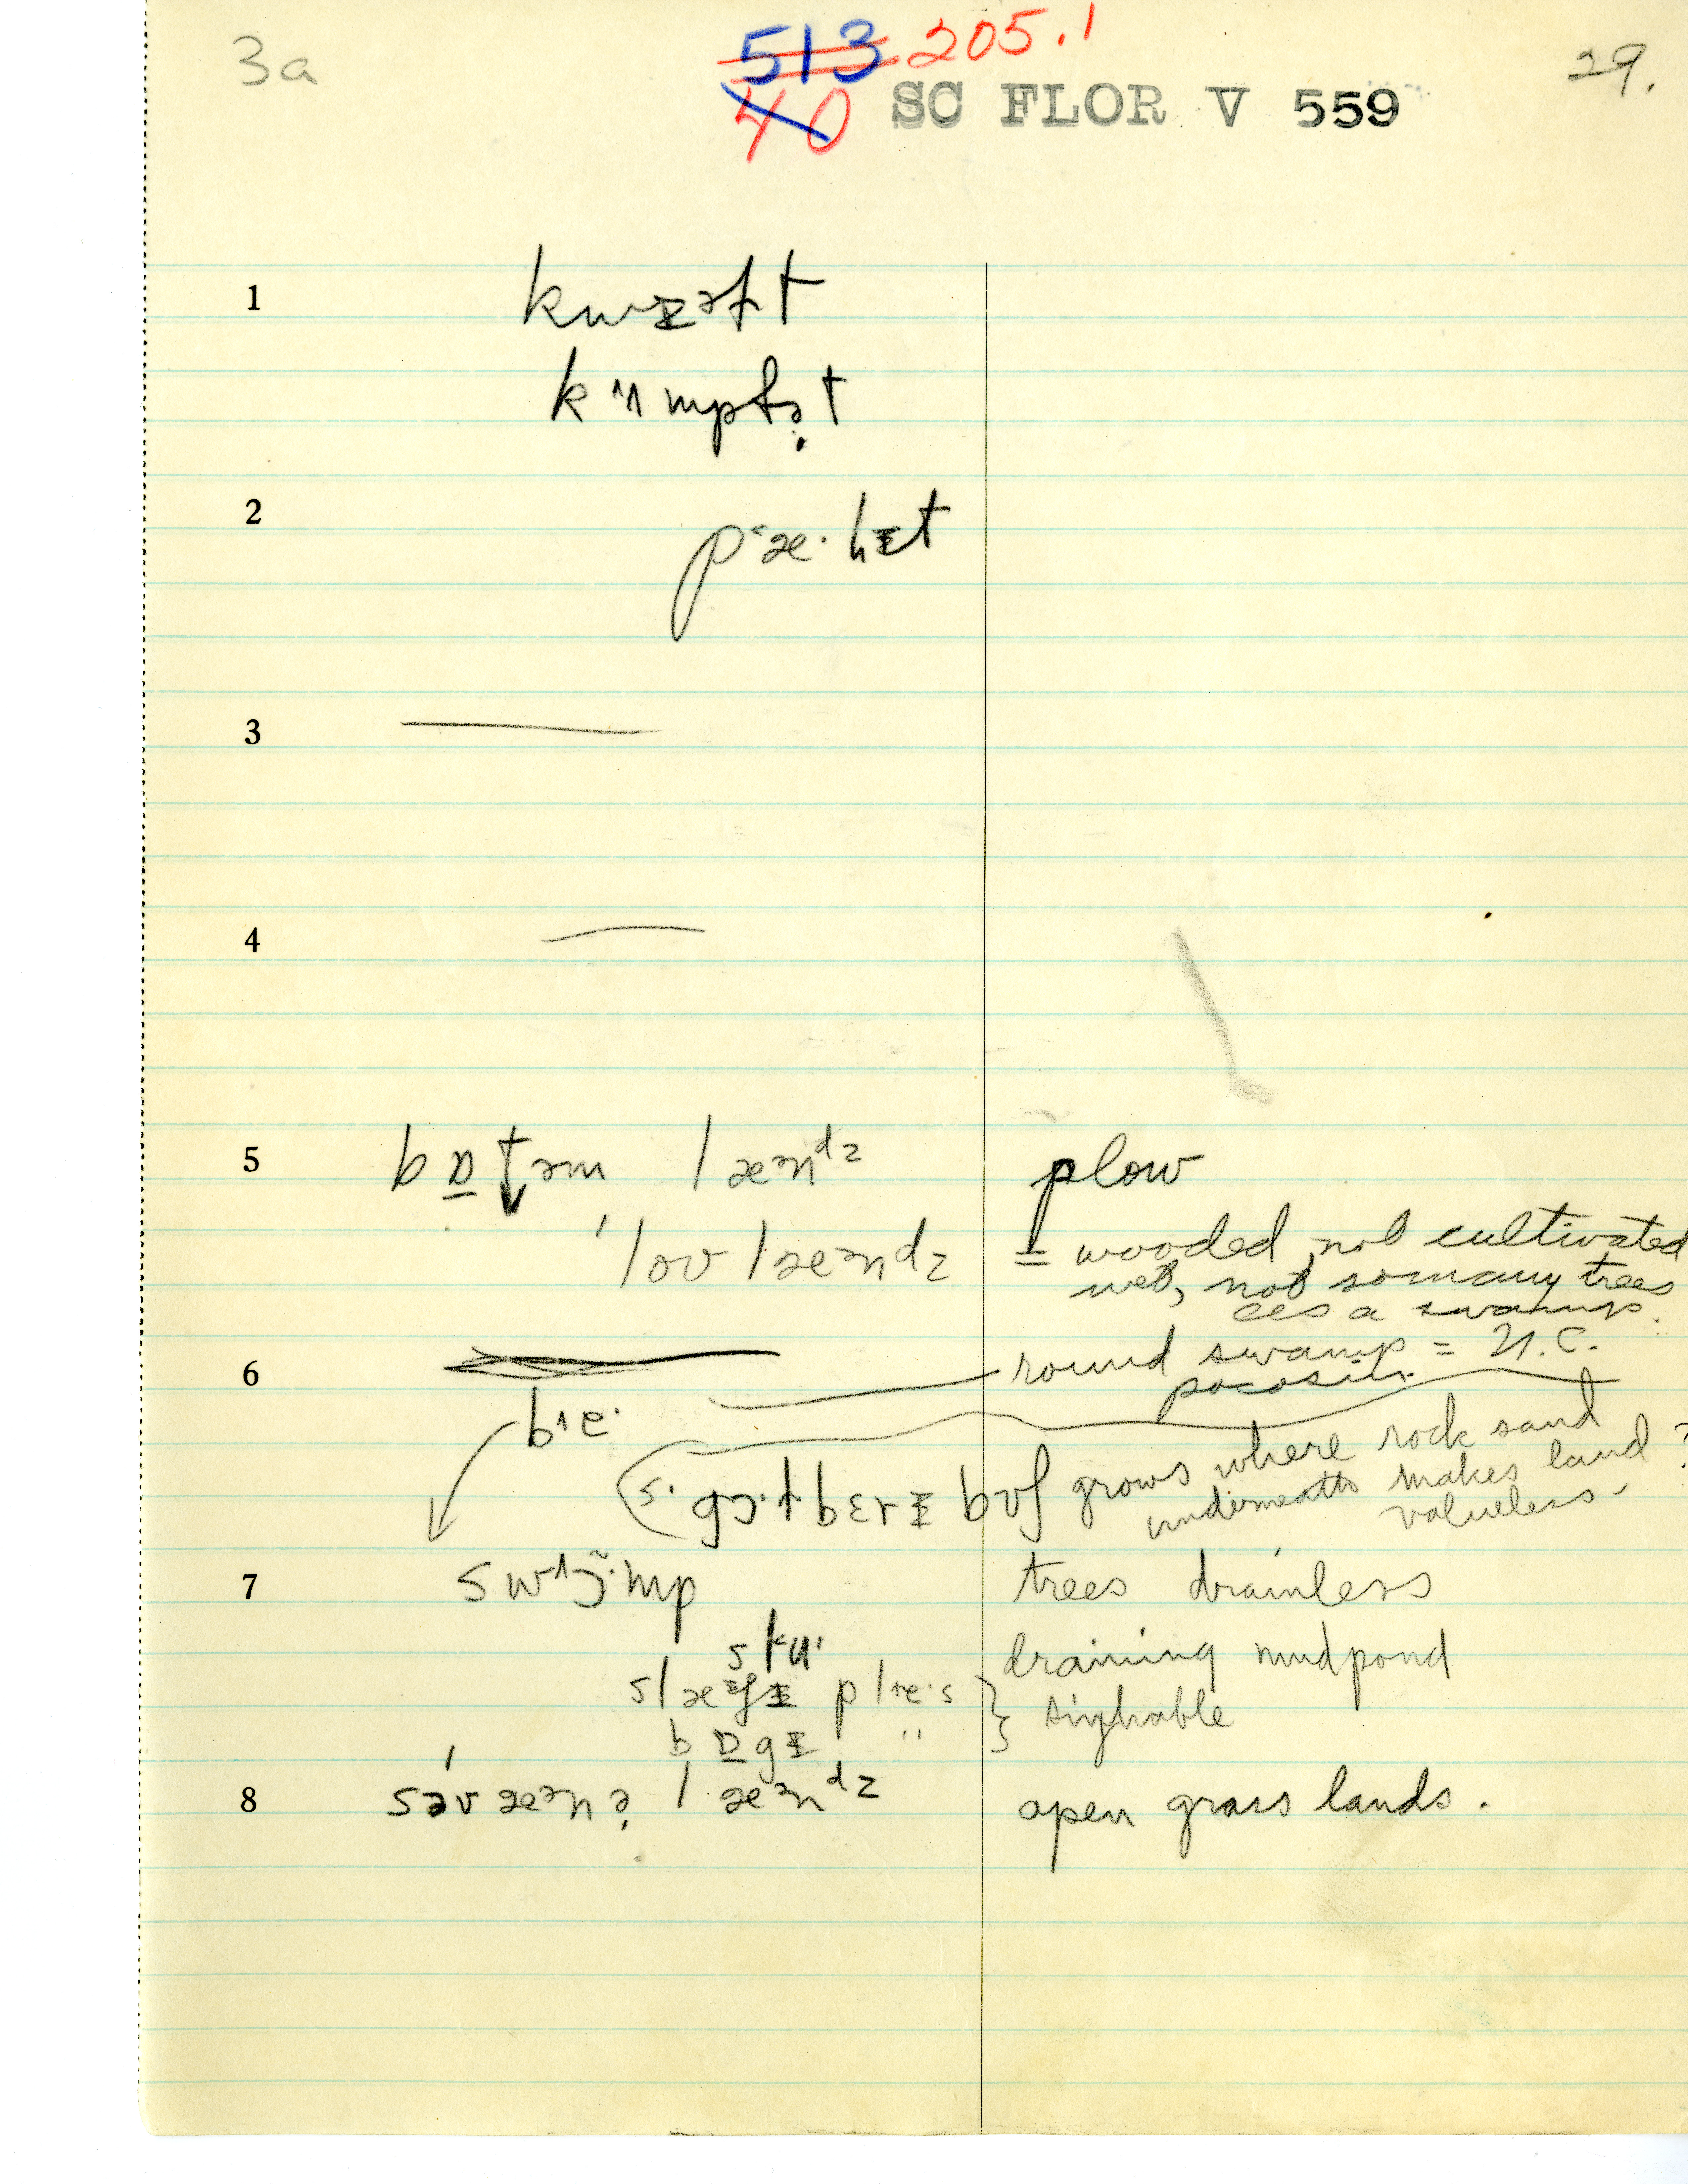 3a
513 205.1
29.
40 SC FLOR V 559
1
kwɪəft
kʌmpfə̣t
2
pʽæ·hɪt
3
4
5
bɒ̱təm læənᵈz
plow
ˈloʊlæəndz
= wooded, not cultivated
wet, not so many trees
as a swamp.
6
round swamp = N.C.
pocosin.
be·
grows where rock sand
underneath makes land ?
valueless -
7
trees drainless
draining mudpond
p l e· s
} sighable
bɒ̱gɪ "
8
səvæənə̣ læənᵈz
open grass lands.